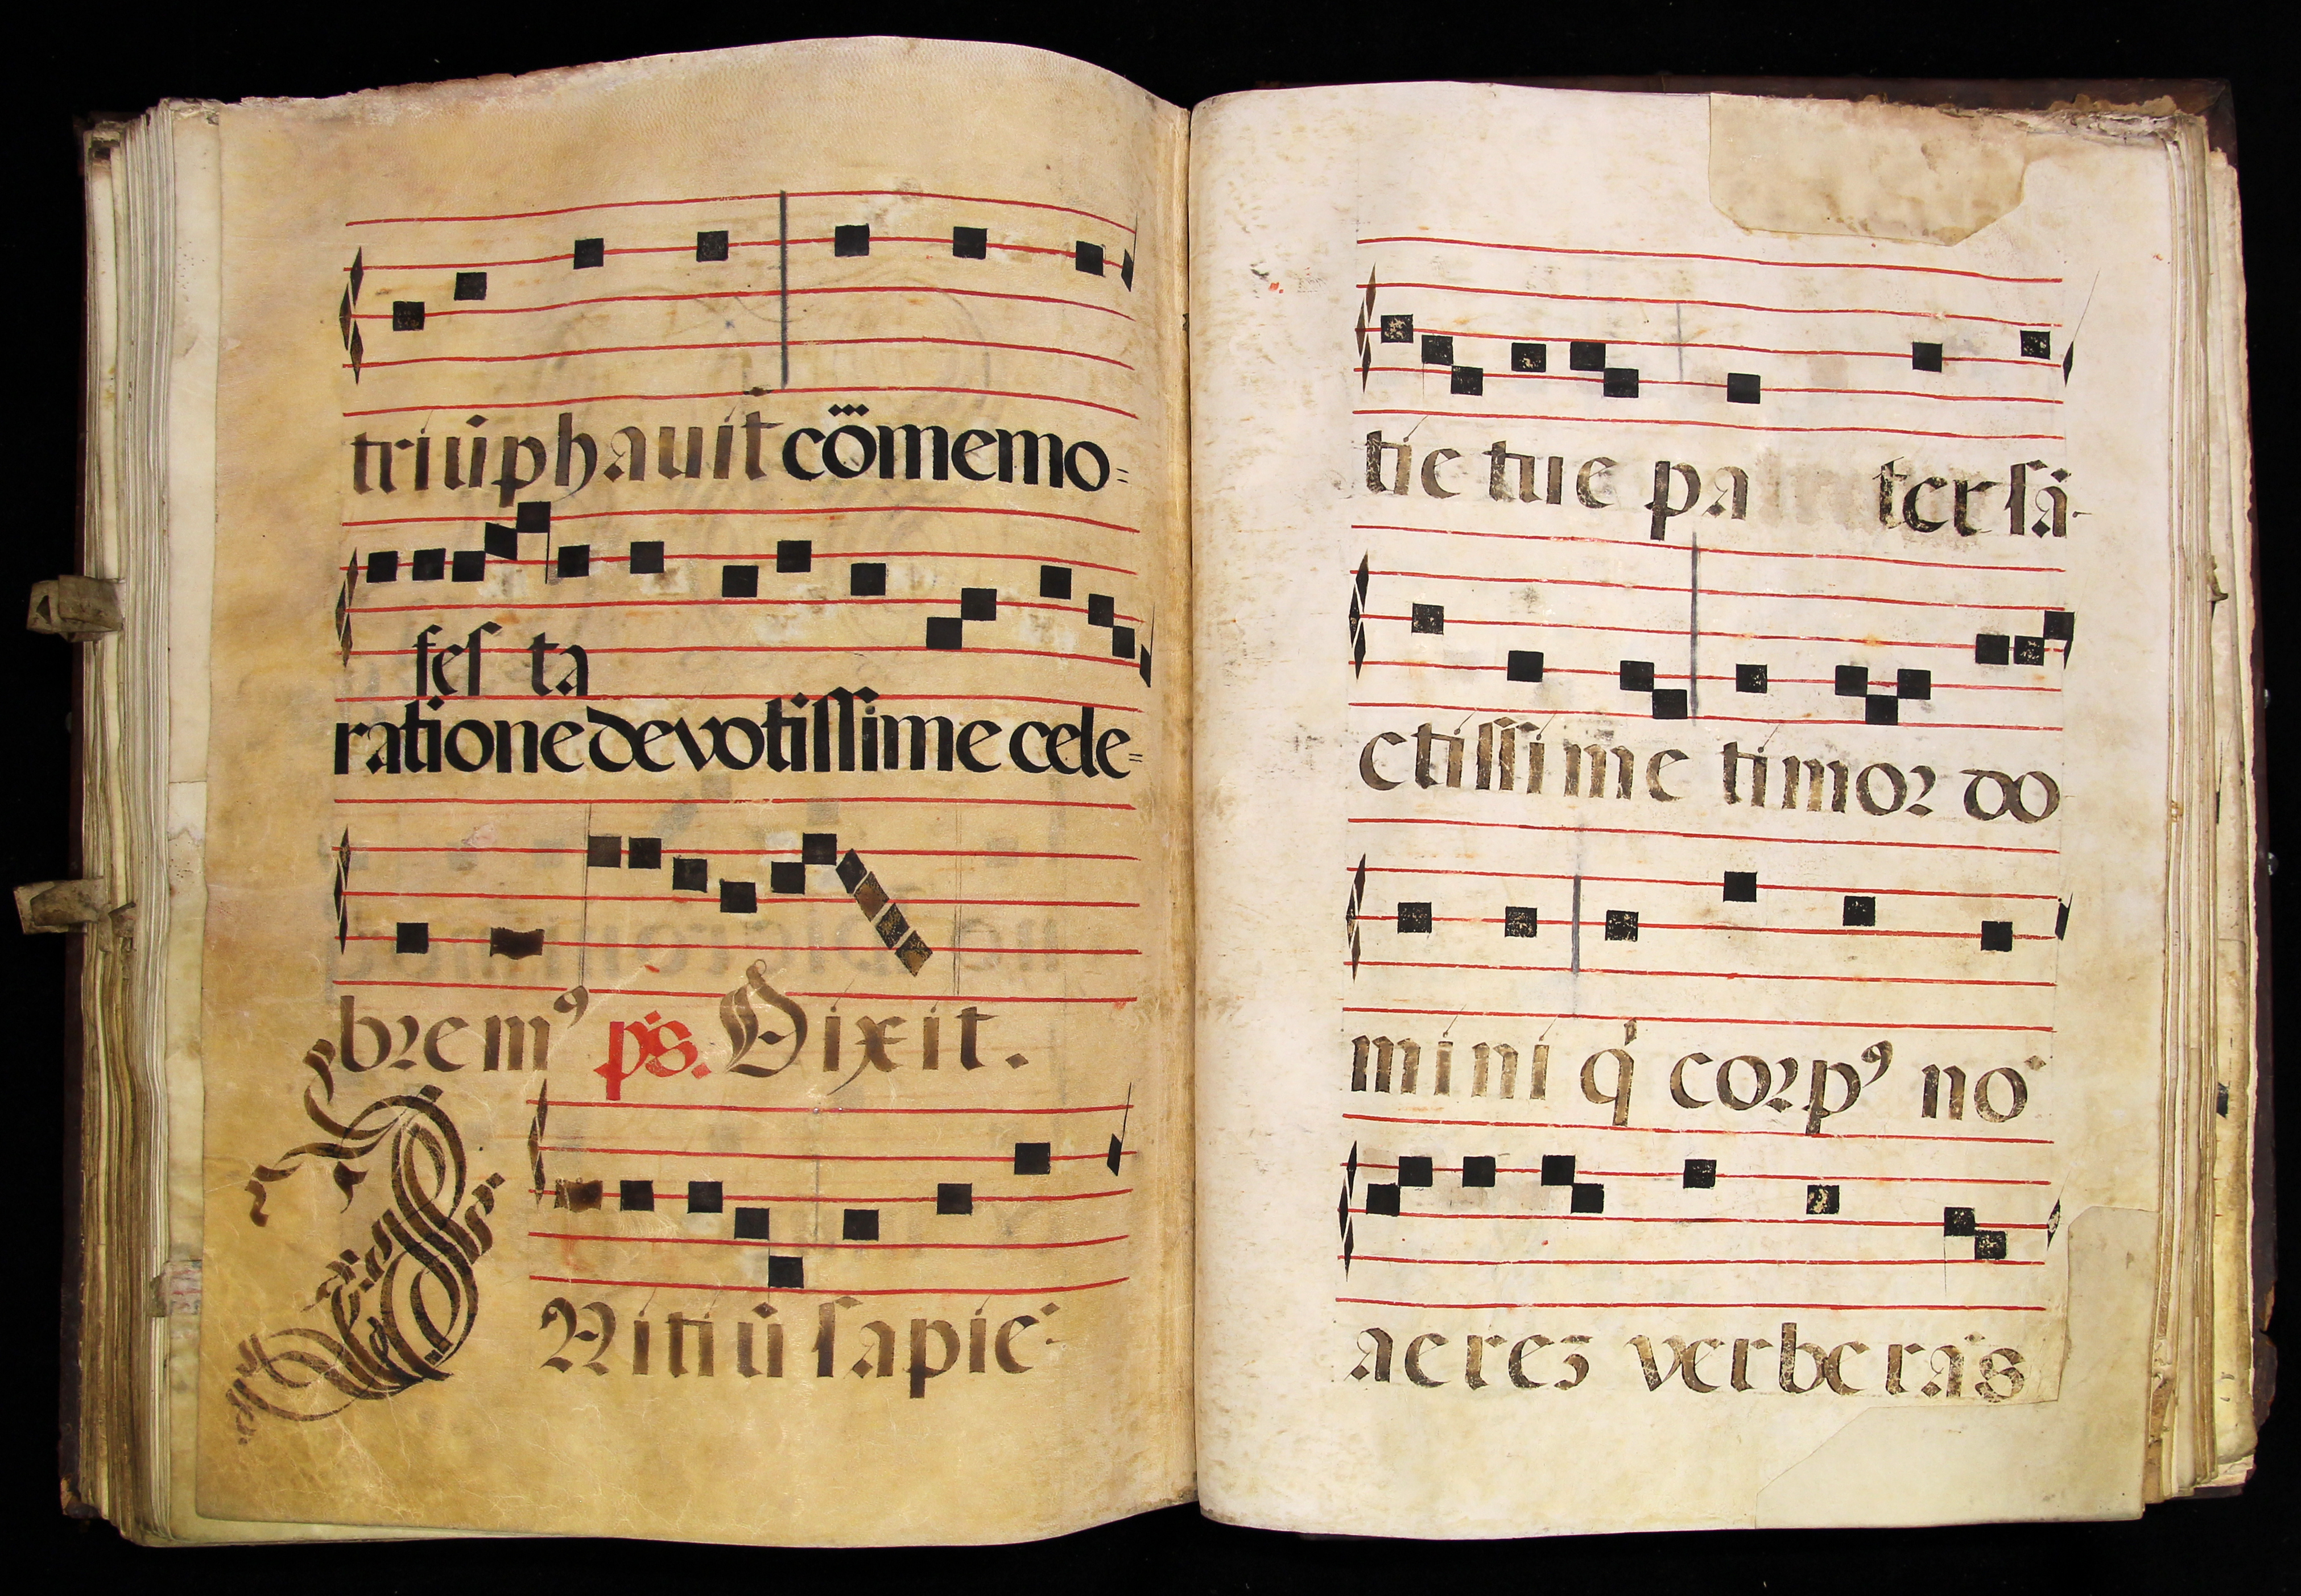 triūphauit cōmemo=
fes ta
ratione devotissime cele=
bremꝰ ps. Dixit.
Nitiū sapiē
tie tue pa ter sā
ctissime timor do
mini q̇ corpꝰ nō
aereȝ verberās